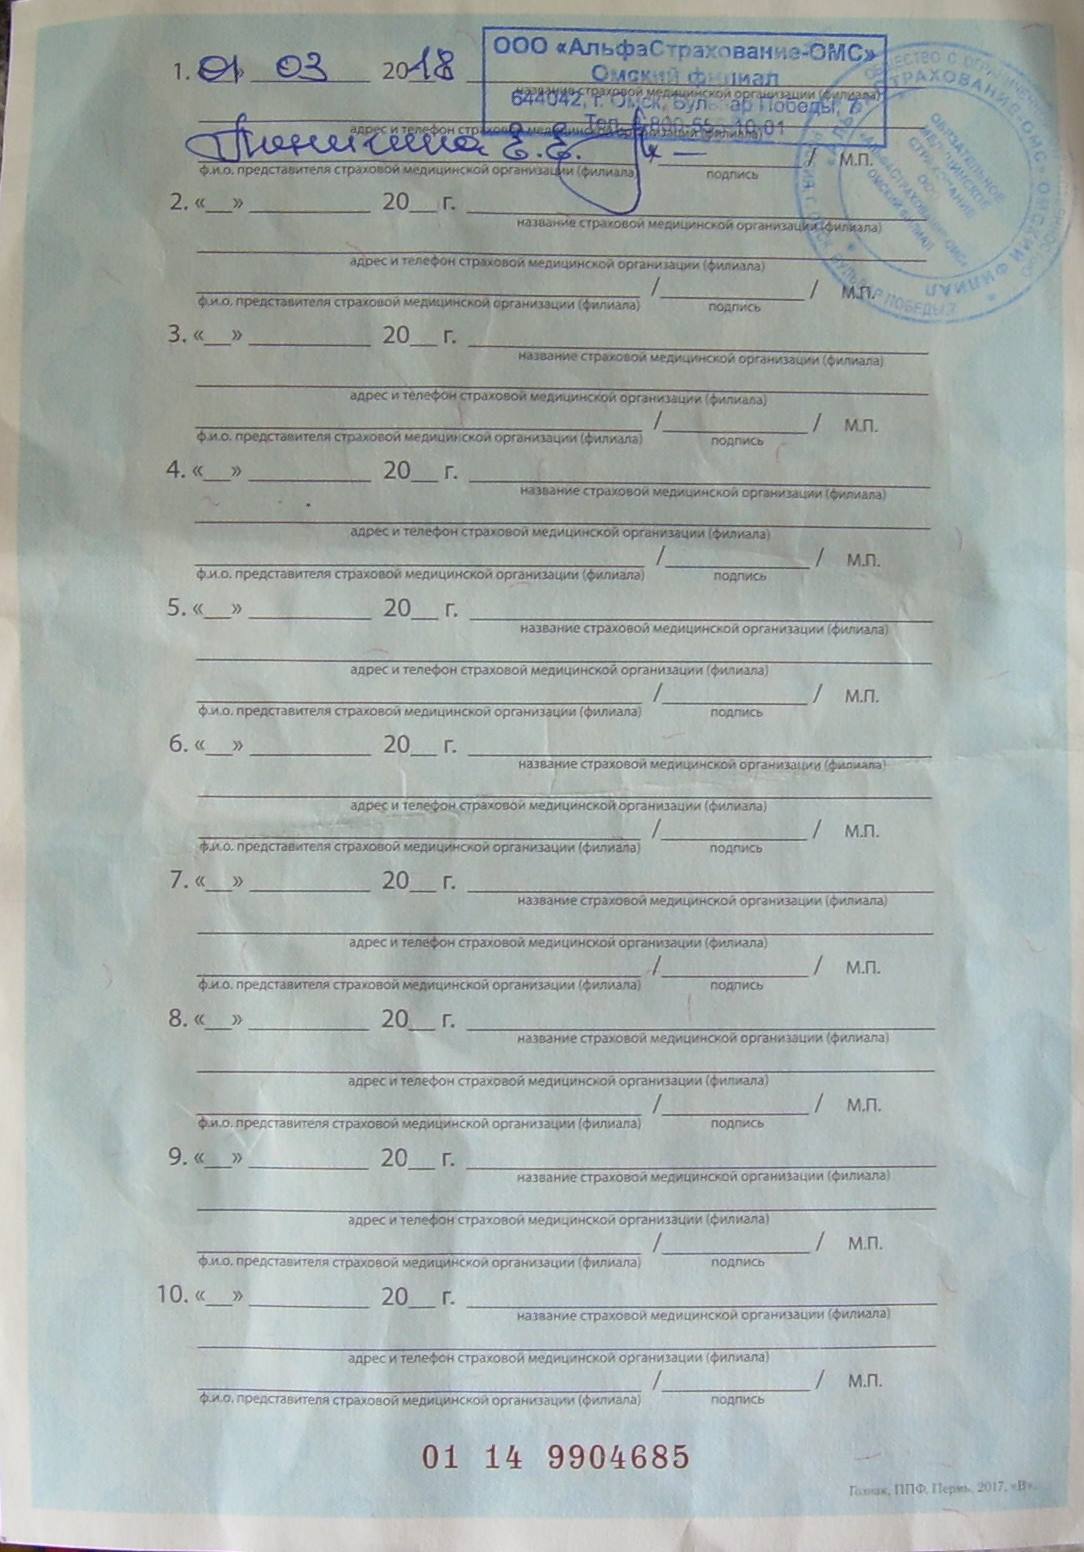 1. «01» 03 2018 ООО «АльфаСтрахование-ОМС»
Омский филиал
название страховой медицинской организации (филиала)
644042, г. Омск, Бульвар Победы, 7
Тел. 8 800 555-10-01
адрес и телефон страховой медицинской организации (филиала)
Е.Е. / М.П.
ф.и.о. представителя страховой медицинской организации (филиала) подпись
2. «__» ________ 20__ г.
название страховой медицинской организации (филиала)
адрес и телефон страховой медицинской организации (филиала)
/ / М.П.
ф.и.о. представителя страховой медицинской организации (филиала) подпись
3. «__» ________ 20__ г.
название страховой медицинской организации (филиала)
адрес и телефон страховой медицинской организации (филиала)
/ / М.П.
ф.и.о. представителя страховой медицинской организации (филиала) подпись
4. «__» ________ 20__ г.
название страховой медицинской организации (филиала)
адрес и телефон страховой медицинской организации (филиала)
/ / М.П.
ф.и.о. представителя страховой медицинской организации (филиала) подпись
5. «__» ________ 20__ г.
название страховой медицинской организации (филиала)
адрес и телефон страховой медицинской организации (филиала)
/ / М.П.
ф.и.о. представителя страховой медицинской организации (филиала) подпись
6. «__» ________ 20__ г.
название страховой медицинской организации (филиала)
адрес и телефон страховой медицинской организации (филиала)
/ / М.П.
ф.и.о. представителя страховой медицинской организации (филиала) подпись
7. «__» ________ 20__ г.
название страховой медицинской организации (филиала)
адрес и телефон страховой медицинской организации (филиала)
/ / М.П.
ф.и.о. представителя страховой медицинской организации (филиала) подпись
8. «__» ________ 20__ г.
название страховой медицинской организации (филиала)
адрес и телефон страховой медицинской организации (филиала)
/ / М.П.
ф.и.о. представителя страховой медицинской организации (филиала) подпись
9. «__» ________ 20__ г.
название страховой медицинской организации (филиала)
адрес и телефон страховой медицинской организации (филиала)
/ / М.П.
ф.и.о. представителя страховой медицинской организации (филиала) подпись
10. «__» ________ 20__ г.
название страховой медицинской организации (филиала)
адрес и телефон страховой медицинской организации (филиала)
/ / М.П.
ф.и.о. представителя страховой медицинской организации (филиала) подпись
01 14 9904685
Гознак, ППФ, Пермь, 2017, «В».
ОБЯЗАТЕЛЬНОЕ
МЕДИЦИНСКОЕ
СТРАХОВАНИЕ
ООО
«АЛЬФАСТРАХОВАНИЕ-ОМС»
ОМСКИЙ ФИЛИАЛ